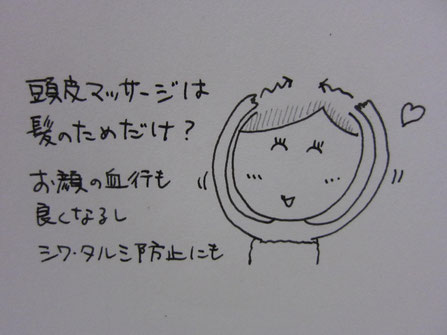 頭皮マッサージは
髪のためだけ？
お顔の血行も
良くなるし
シワ・タルミ防止にも